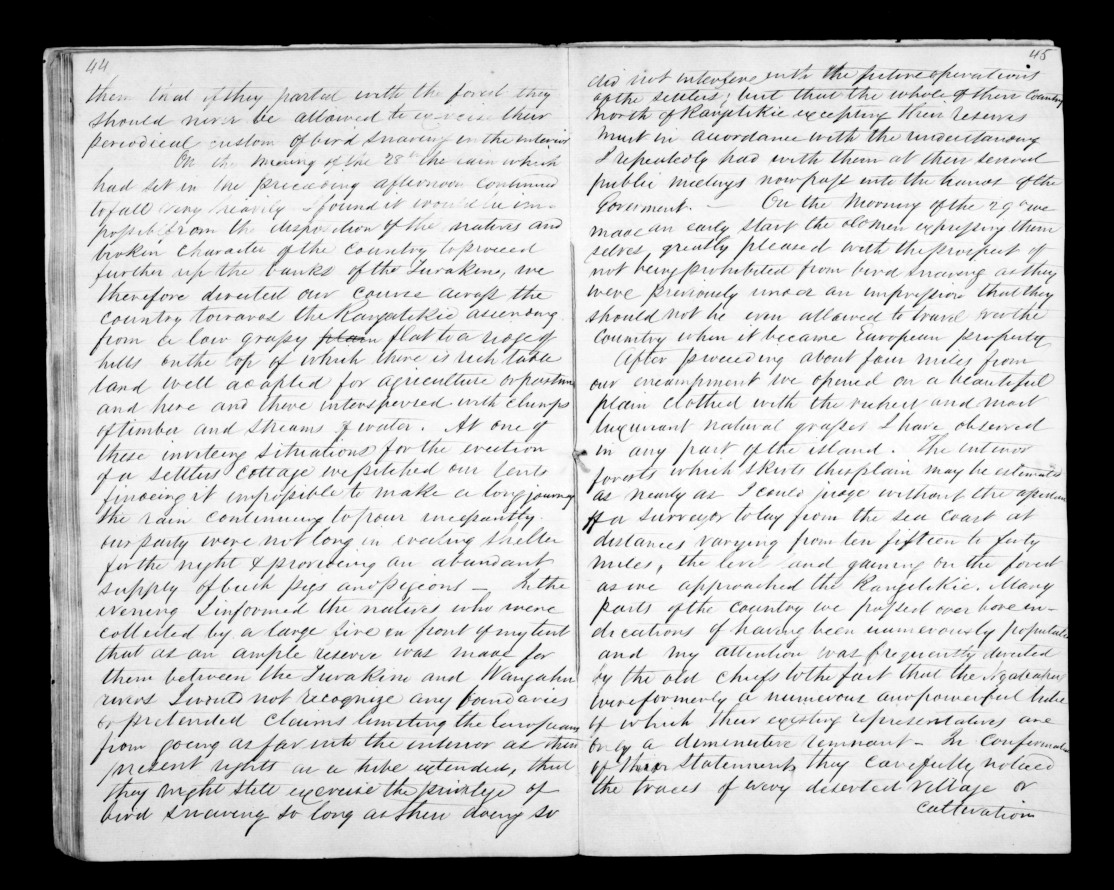 44
them that if they parted with the forest they
should never be allowed to exercise their
periodical custom of bird snaring in the interior
On the morning of the 28th the rain which
had set in the preceding afternoon continued
to fall very heavily I found it would be im-
possible from the disposition of the natives and
broken character of the country to proceed
further up the banks of the Turakina, we
therefore directed our course across the
country towards the Rangitikie ascending
from a low grassy plain flat to a ridge of
hills on the top of which there is rich table
land well adapted for agriculture or pasture
and here and there interspersed with clumps
of timber and streams of water. At one of
these inviting situations for the erection
of a settlers cottage we pitched our tents
finding it impossible to make a long journey
the rain continuing to pour incessantly.
our party were not long in erecting shelter
for the night & providing an abundant
supply of bush pigs and pigeons — In the
evening I informed the natives who were
collected by a large fire in front of my tent
that as an ample reserve was made for
them between the Turakina and Wangaihu
rivers I would not recognize any boundaries
or pretended claims limiting the Europeans
from going as far into the interior as their
present rights as a tribe extended, that
they might still exercise the privilege of
bird snaring so long as their doing so
45
did not interfere with the future operations
of the settlers; but that the whole of their Country
north of Rangitikie excepting their reserves
must in accordance with the understanding
I repeatedly had with them at their several
public meetings now pass into the hands of the
Goverment. — On the morning of the 29th we
made an early start the old men expressing them
selves, greatly pleased with the prospect of
not being prohibited from bird snaring as they
were previously under an impression that they
should not be even allowed to travel over the
country when it became European property
After proceeding about four miles from
our encampment we opened on a beautiful
plain clothed with the richest and most
luxuriant natural grasses I have observed
in any part of the island. The interior
forests which skirts this plain may be estimated
as nearly as I could judge without the
of a surveyor to lay from the sea coast at
distances varying from ten fifteen to forty
miles, the level land gaining on the forest
as we approached the Rangitikie. Many
parts of the country we passed over bore in-
dications of having been numerously populated
and my attention was frequently directed
by the old chiefs to the fact that the Ngatiapas
were formerly a numerous and powerful tribe
of which their existing representatives are
only a diminutive remnant — In confirmation
of their statements they carefully noticed
the traces of every deserted village or
cultivation